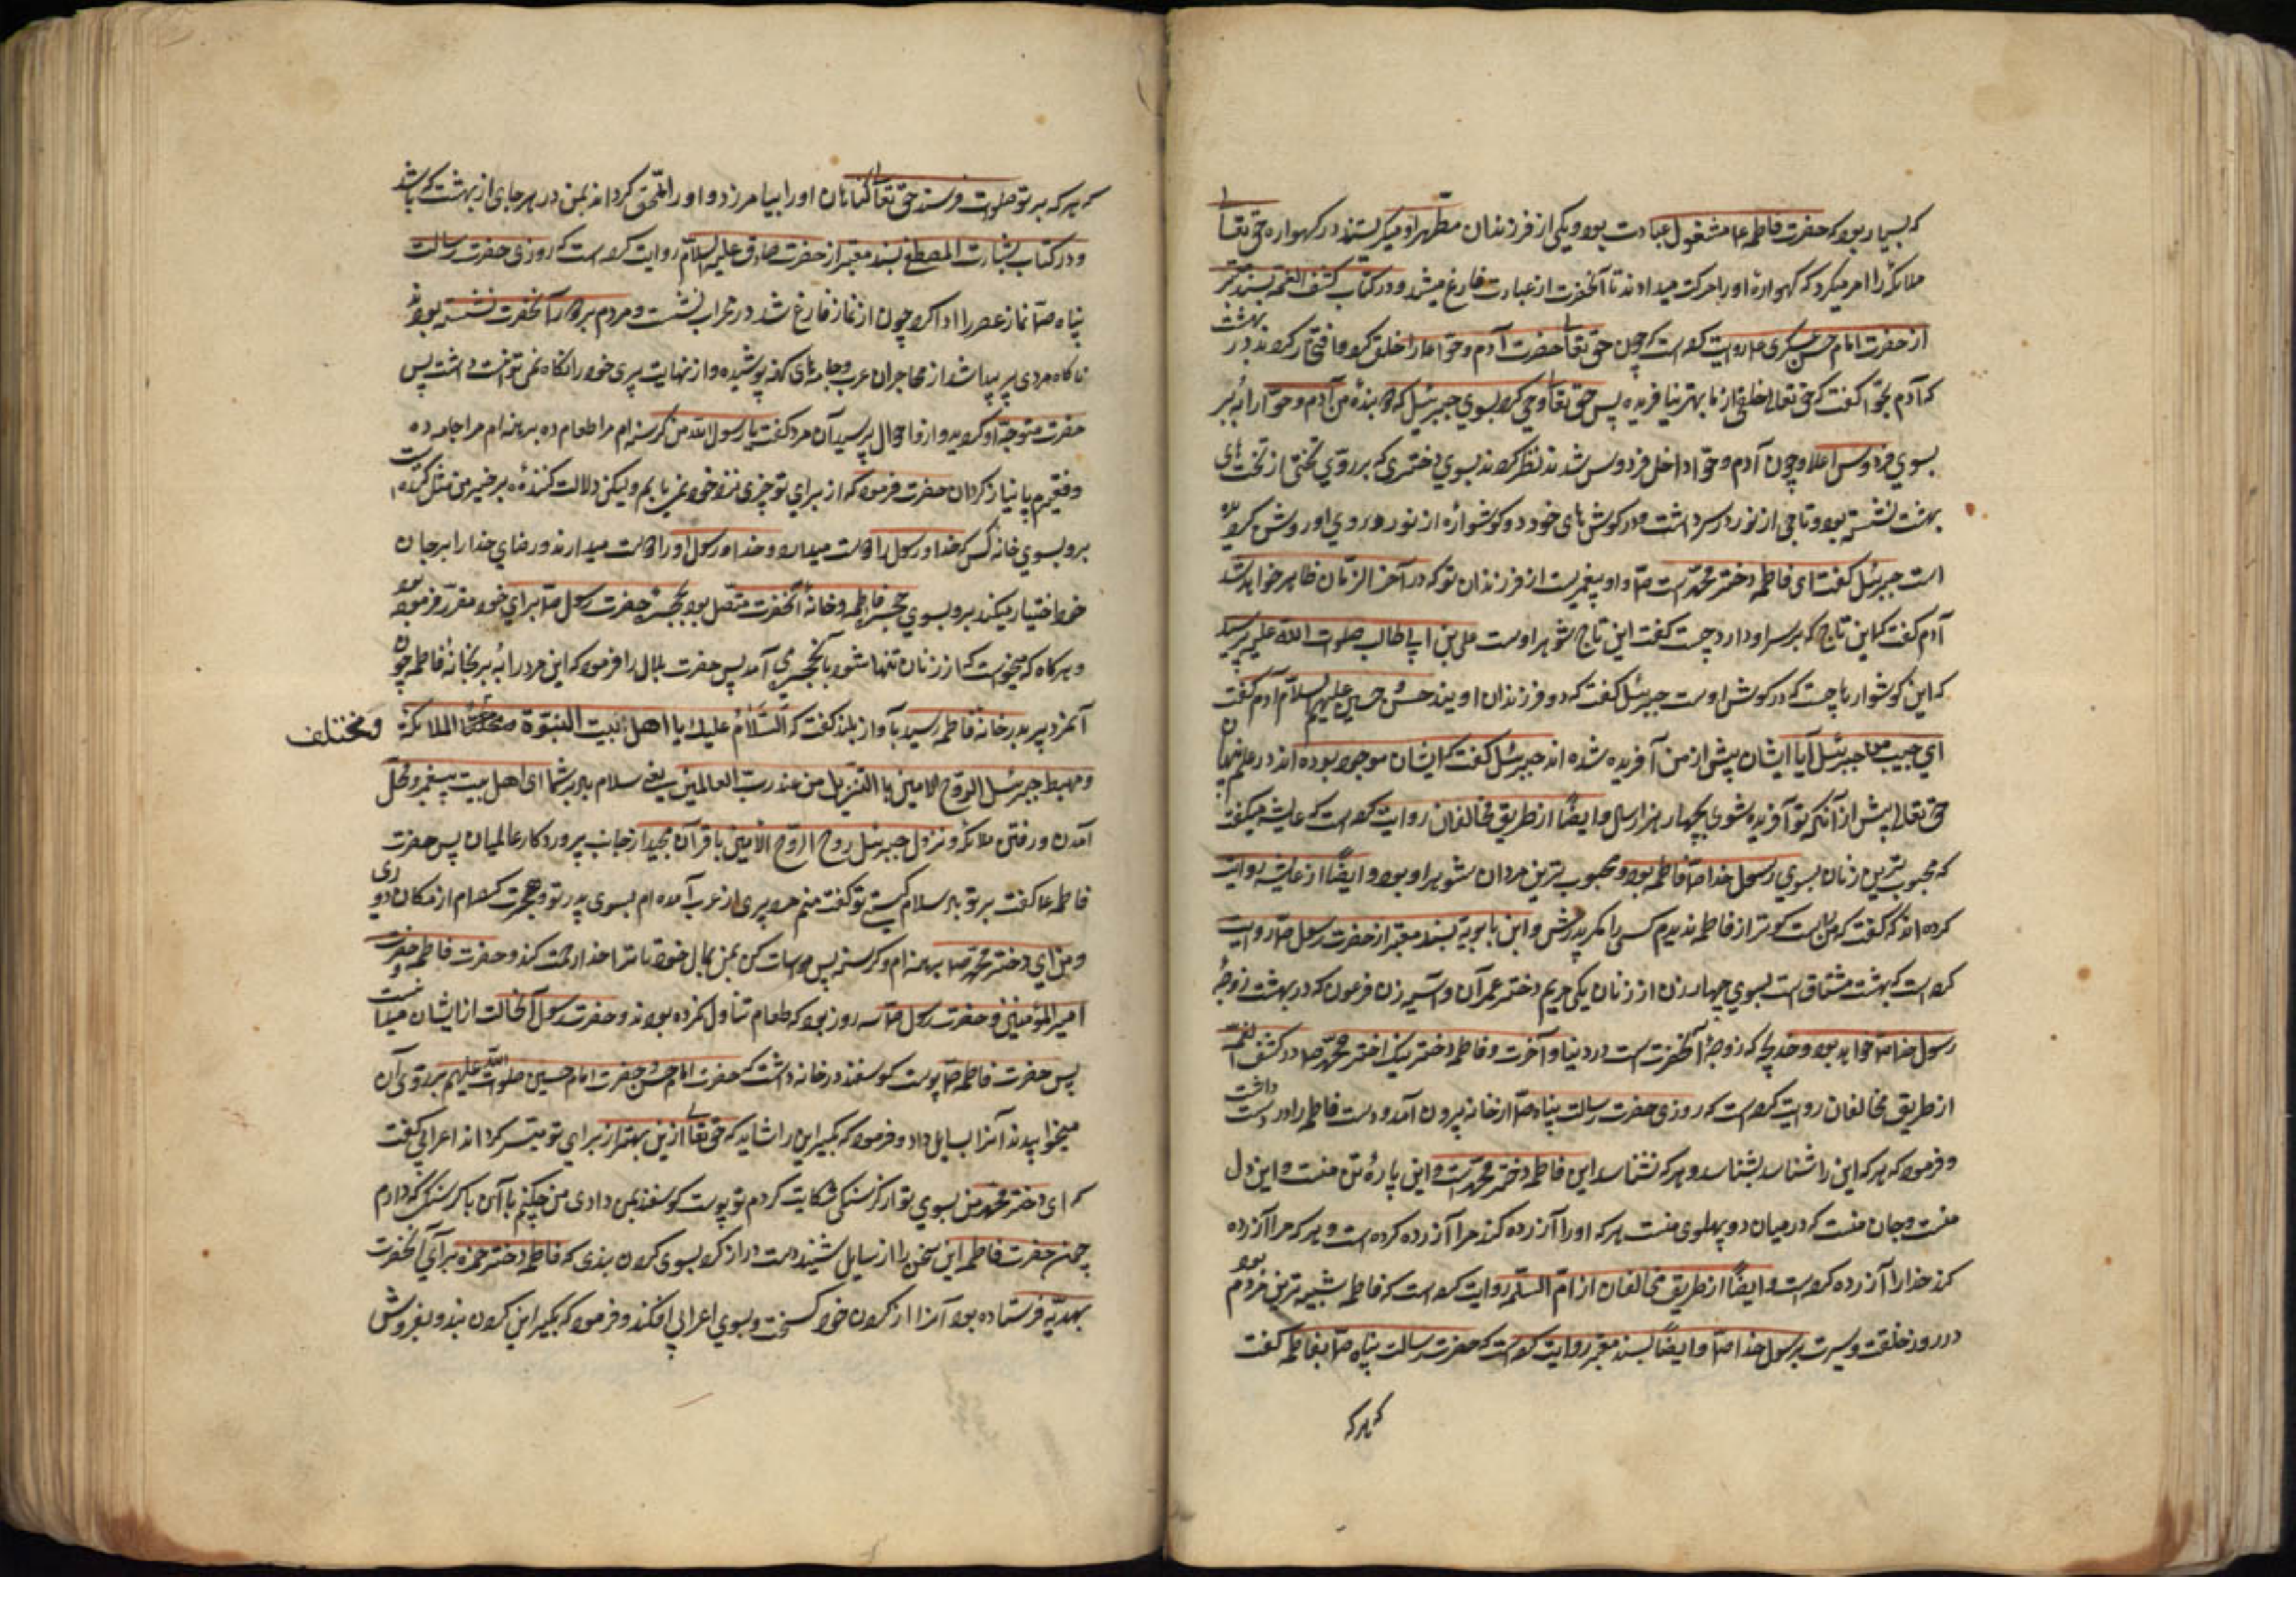 که بسیار بود که حضرت فاطمه ع‍ا مشغول عبادت بود و یکی از فرزندان مطهر او میگریستند در کهواره حق تعالی
ملائکه را امر میکرد که کهوارهٔ او را حرکت میدادند تا آنحضرت از عبادت فارغ میشد و در کتاب کشف الغمه بسند معتبر
از حضرت امام حسن عسکری روایت کرده است که چون حق تعالی حضرت آدم و حوا را خلق کرد افتخار کردند در بهشت
که آدم بحوا کفت که حق تعالی خلقی از ما بهتر نیافریده پس حق تعالی وحی کرد بسوی جبرئیل که بندهٔ من آدم و حوا را به بر
بسوی فردوس اعلا و چون آدم و حوا داخل فردوس شدند نظر کردند بسوی دختری که بر روی تختی از تخت های
بهشت نشسته بود و تاجی از نور در سر داشت و در کوش های خود دو کوشواره از نور و بر وی او روشن کردیده
است جبرئیل کفت ای فاطمه دختر محمد است ص‍ا و او پیغمبریست از فرزندان تو که در آخر الزمان ظاهر خواهد شد
آدم کفت که این تاج که بر سر او دارد چیست کفت این تاج شوهر اوست علی بن ابی طالب صلوات الله علیه پرسید
که این کوشوارها چیست که در کوش اوست جبرئیل کفت که دو فرزندان اویند حسن و حسین علیهم السلام آدم کفت
ای حبیب من جبرئیل آیا ایشان پیش از من آفریده شده اند جبرئیل کفت که ایشان موجود بوده اند در علم پنهان
حق تعالی پیش از آنکه تو آفریده شوی بچهار هزار سال و ایضا از طریق مخالفان روایت کرده است که عایشه میکفت
که محبوب ترین زنان بسوی رسول خدا ص‍ا فاطمه بود و محبوب ترین مردان شوهر او بود و ایضا از عایشه روایت
کرده اند که کفت که من راست کوتر از فاطمه ندیدم کسی را مکر پدرش و ابن بابویه بسند معتبر از حضرت رسول ص‍ا روایت
کرده است که بهشت مشتاق است بسوی چهار زن از زنان یکی مریم دختر عمران و آسیه زن فرعون که در بهشت زوجهٔ
رسول خدا ص‍ا خواهد بود و خدیجه که زوجهٔ آنحضرت است در دنیا و آخرت و فاطمه دختر نیک اختر محمد ص‍ا در کشف الغمه
از طریق مخالفان روایت کرده است که روزی حضرت رسالت پناه ص‍ا از خانه بیرون آمد و دست فاطمه را در دست داشت
و فرمود که هر که این را شناسد بشناسد و هر که نشناسد این فاطمه دختر محمد است و این پارهٔ تن منست و این دل
منست و جان منست که در میان دو پهلوی منست هر که او را آزرده کند مرا آزرده کرده است و هر که مرا آزرده
کند خدا را آزرده کرده است و ایضا از طریق مخالفان از ام السلمه روایت کرده است که فاطمه شبیه ترین مردم بود
در رو و خلقت و سیرت برسول خدا ص‍ا و ایضا بسند معتبر روایت کرده است که حضرت رسالت پناه ص‍ا بفاطمه کفت
که هر که
که هر که بر تو صلوات فرستد حق تعالی کناهان او را بیامرزد و او را ملحق کرداند بمن در هر جای از بهشت که باشد
و در کتاب بشارت المصطفی بسند معتبر از حضرت صادق علیه السلام روایت کرده است که روزی حضرت رسالت
پناه ص‍ا نماز عصر را ادا کرد چون از نماز فارغ شد در محراب نشست و مردم بر دور آنحضرت نشسته بودند
ناکاه مردی پیر پیدا شد از مهاجران عرب و جامه های کهنه پوشیده و از نهایت پیری خود را نکاه نمی توانست داشت پس
حضرت متوجه او کردید و از احوال پرسید آن مرد کفت یا رسول الله من کرسنه ام مرا طعام ده برهنه ام مرا جامه ده
و فقیرم با نیاز کردان حضرت فرمود که از برای تو چیزی نزد خود نمی یابم ولیکن دلالت کنندهٔ بر خیر مثل کننده است
برو بسوی خانهٔ کسی که خدا و رسول را دوست میدارد و خدا و رسول او را دوست میدارند و رضای خدا را بر جان
خود اختیار میکند برو بسوی حجرهٔ فاطمه و خانهٔ آنحضرت متصل بود بحجرهٔ حضرت رسول ص‍ا برای خود مقرر فرموده بود
و هر کاه که میخواست که از زنان تنها شود بآن حجره می آمد پس حضرت بلال را فرمود که این مرد را به بر بخانهٔ فاطمه چون
آنمرد پیر بدر خانهٔ فاطمه رسید بآواز بلند کفت که السلام علیک یا اهل بیت النبوة و مختلف الملائکة
و مهبط جبرئیل الروح الامین با التنزیل من عند رب العالمین یعنی سلام باد بر شما ای اهل بیت پیغمبر و محل
آمدن و رفتن ملائکه و نزول جبرئیل روح الروح الامین با قرآن مجید از جانب پروردکار عالمیان پس حضرت
فاطمه ع‍ا کفت بر تو باد سلام کیستی تو کفت منم مرد پیری از عرب آمده ام بسوی پدر تو و هجرت کرده ام از مکان دوری
و من ای دختر محمد ص‍ا برهنه ام و کرسنه پس مواسات کن بمن بمال خود تا ترا خدا رحمت کند و حضرت فاطمه و حضرت
امیر المؤمنین و حضرت رسول ص‍ا سه روز بود که طعام تناول نکرده بودند و حضرت رسول آن حالت از ایشان میدانست
پس حضرت فاطمه ص‍ا پوست کوسفند در خانه داشت که حضرت امام حسن و حضرت امام حسین صلوات الله علیهم بر روی آن
میخوابیدند آنرا بسایل داد و فرمود که بکیر این را شاید که حق تعالی ازین بهتر از برای تو میسر کرداند اعرابی کفت
که ای دختر محمد من بسوی تو از کرسنکی شکایت کردم تو پوست کوسفند بمن دادی من چکنم با آن با کرسنکی که دارم
چون حضرت فاطمه این سخن را از سایل شنید دست دراز کرد بسوی کردن بندی که فاطمه دختر حمزه برای آنحضرت
بهدیه فرستاده بود آنرا از کردن خود کسیخت و بسوی اعرابی افکند و فرمود که بکیر این کردن بند و بفروش